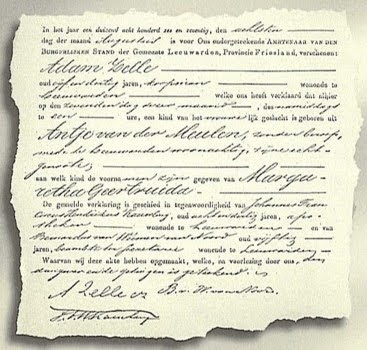 In het jaar een duizend acht honderd zes en zeventig, den achtsten
dag der maand Augustus is voor Ons ondergeteekende Ambtenaar van den
Burgerlijken Stand der Gemeente Leeuwarden, Provincie Friesland, verschenen:
Adam Zelle
oud vijf en dertig jaren, wonende te
Leeuwarden welke ons heeft verklaard dat alhier
op den zevenden dezer maand, des namiddags
te een ure, een kind van het vrouwelijk geslacht is geboren uit
Antje van der Meulen, zonder beroep,
mede te Leeuwarden woonachtig, zijne echt-
genoote,
aan welk kind de voornamen zijn gegeven van Marga-
retha Geertruida
De gemelde verklaring is geschied in tegenwoordigheid van Johannes
oud jaren, apo-
theker wonende te Leeuwarden en van
oud vijftig
jaren, wonende te Leeuwarden
Waarvan wij deze akte hebben opgemaakt, welke, na voorlezing door ons,
is geteekend.
A Zelle